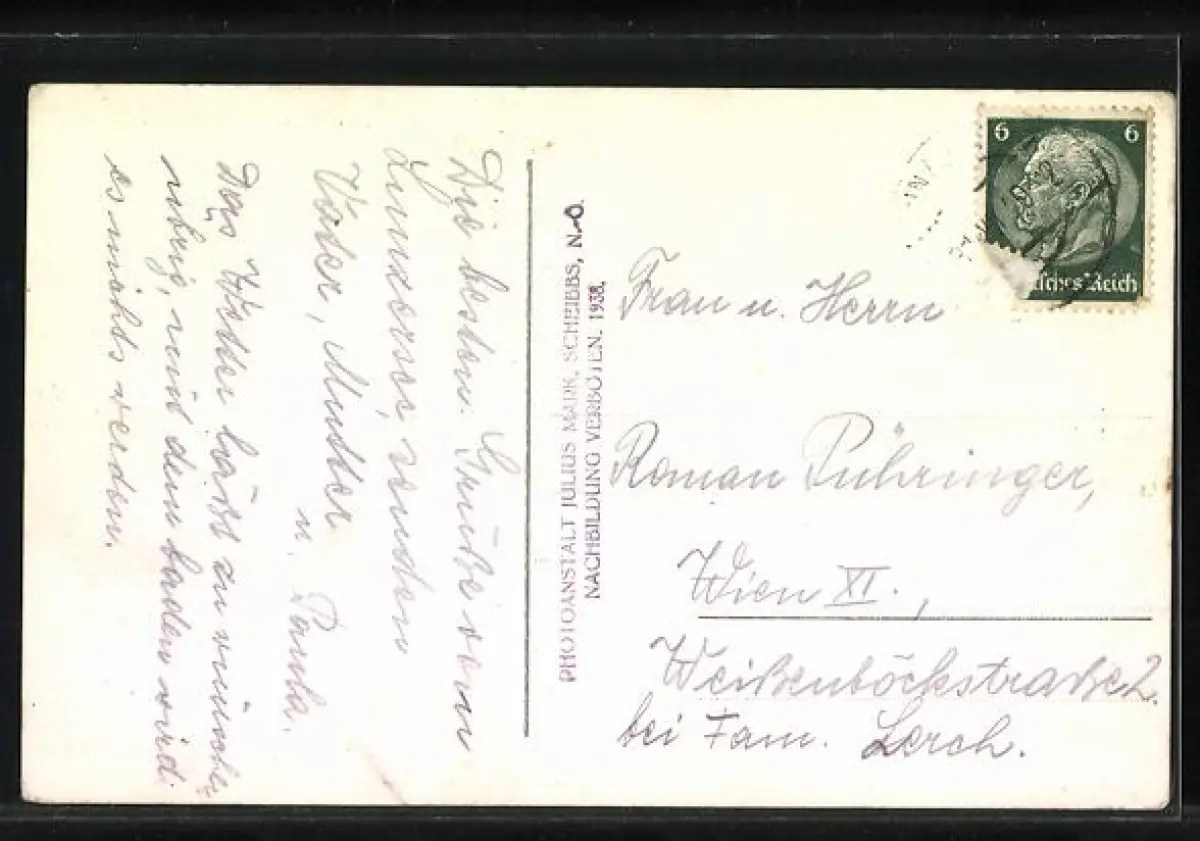 Die besten Grüße vom
Lunzersee, senden
Vater, Mutter
u. Paula.
Das Wetter läßt zu wünschen
übrig, mit dem baden wird
es nichts werden.
PHOTOANSTALT JULIUS MARK, SCHEIBBS, N.-Ö.
NACHBILDUNG VERBOTEN. 1938.
6 6
sches Reich
Frau u. Herrn
Roman Pühringer,
Wien XI.,
Weißenböckstraße 2.
bei Fam. Lerch.